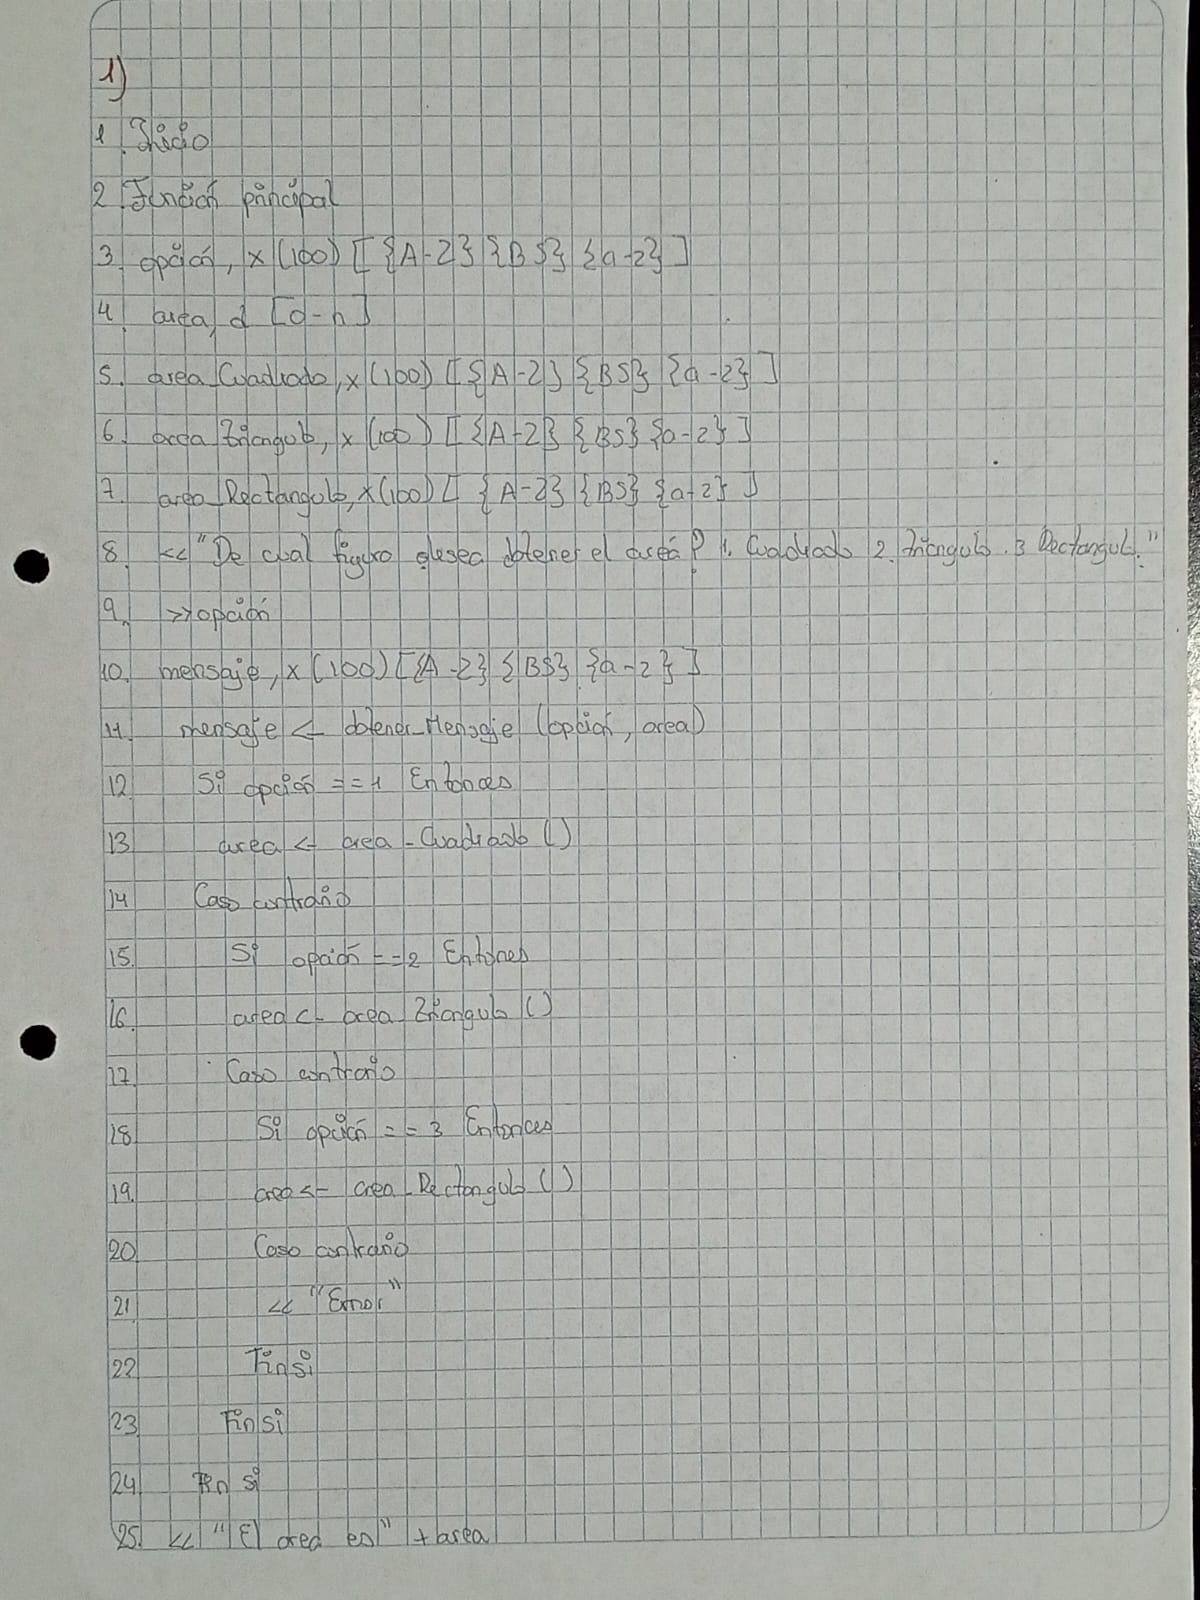 1)
1. Inicio
2. Función principal
3. opción, x (100) [ {A-Z} {BS} {a-z} ]
4. area, d [0-n]
5. area_Cuadrado, x (100) [ {A-Z} {BS} {a-z} ]
6. area_Triangulo, x (100) [ {A-Z} {BS} {a-z} ]
7. area_Rectangulo, x (100) [ {A-Z} {BS} {a-z} ]
8. << "De cual figura desea obtener el area? 1. Cuadrado 2. Triangulo. 3 Rectangulo."
9. >> opción
10. mensaje, x (100) [ {A-Z} {BS} {a-z} ]
11. mensaje <- obtener_Mensaje (opción, area)
12. Si opción == 1 Entonces
13. area <- area_Cuadrado ()
14. Caso contrario
15. Si opción == 2 Entonces
16. area <- area_Triangulo ()
17. Caso contrario
18. Si opción == 3 Entonces
19. area <- area_Rectangulo ()
20 Caso contrario
21 << "Error"
22 Fin si
23 Fin si
24 Fin si
25. << "El area es" + area